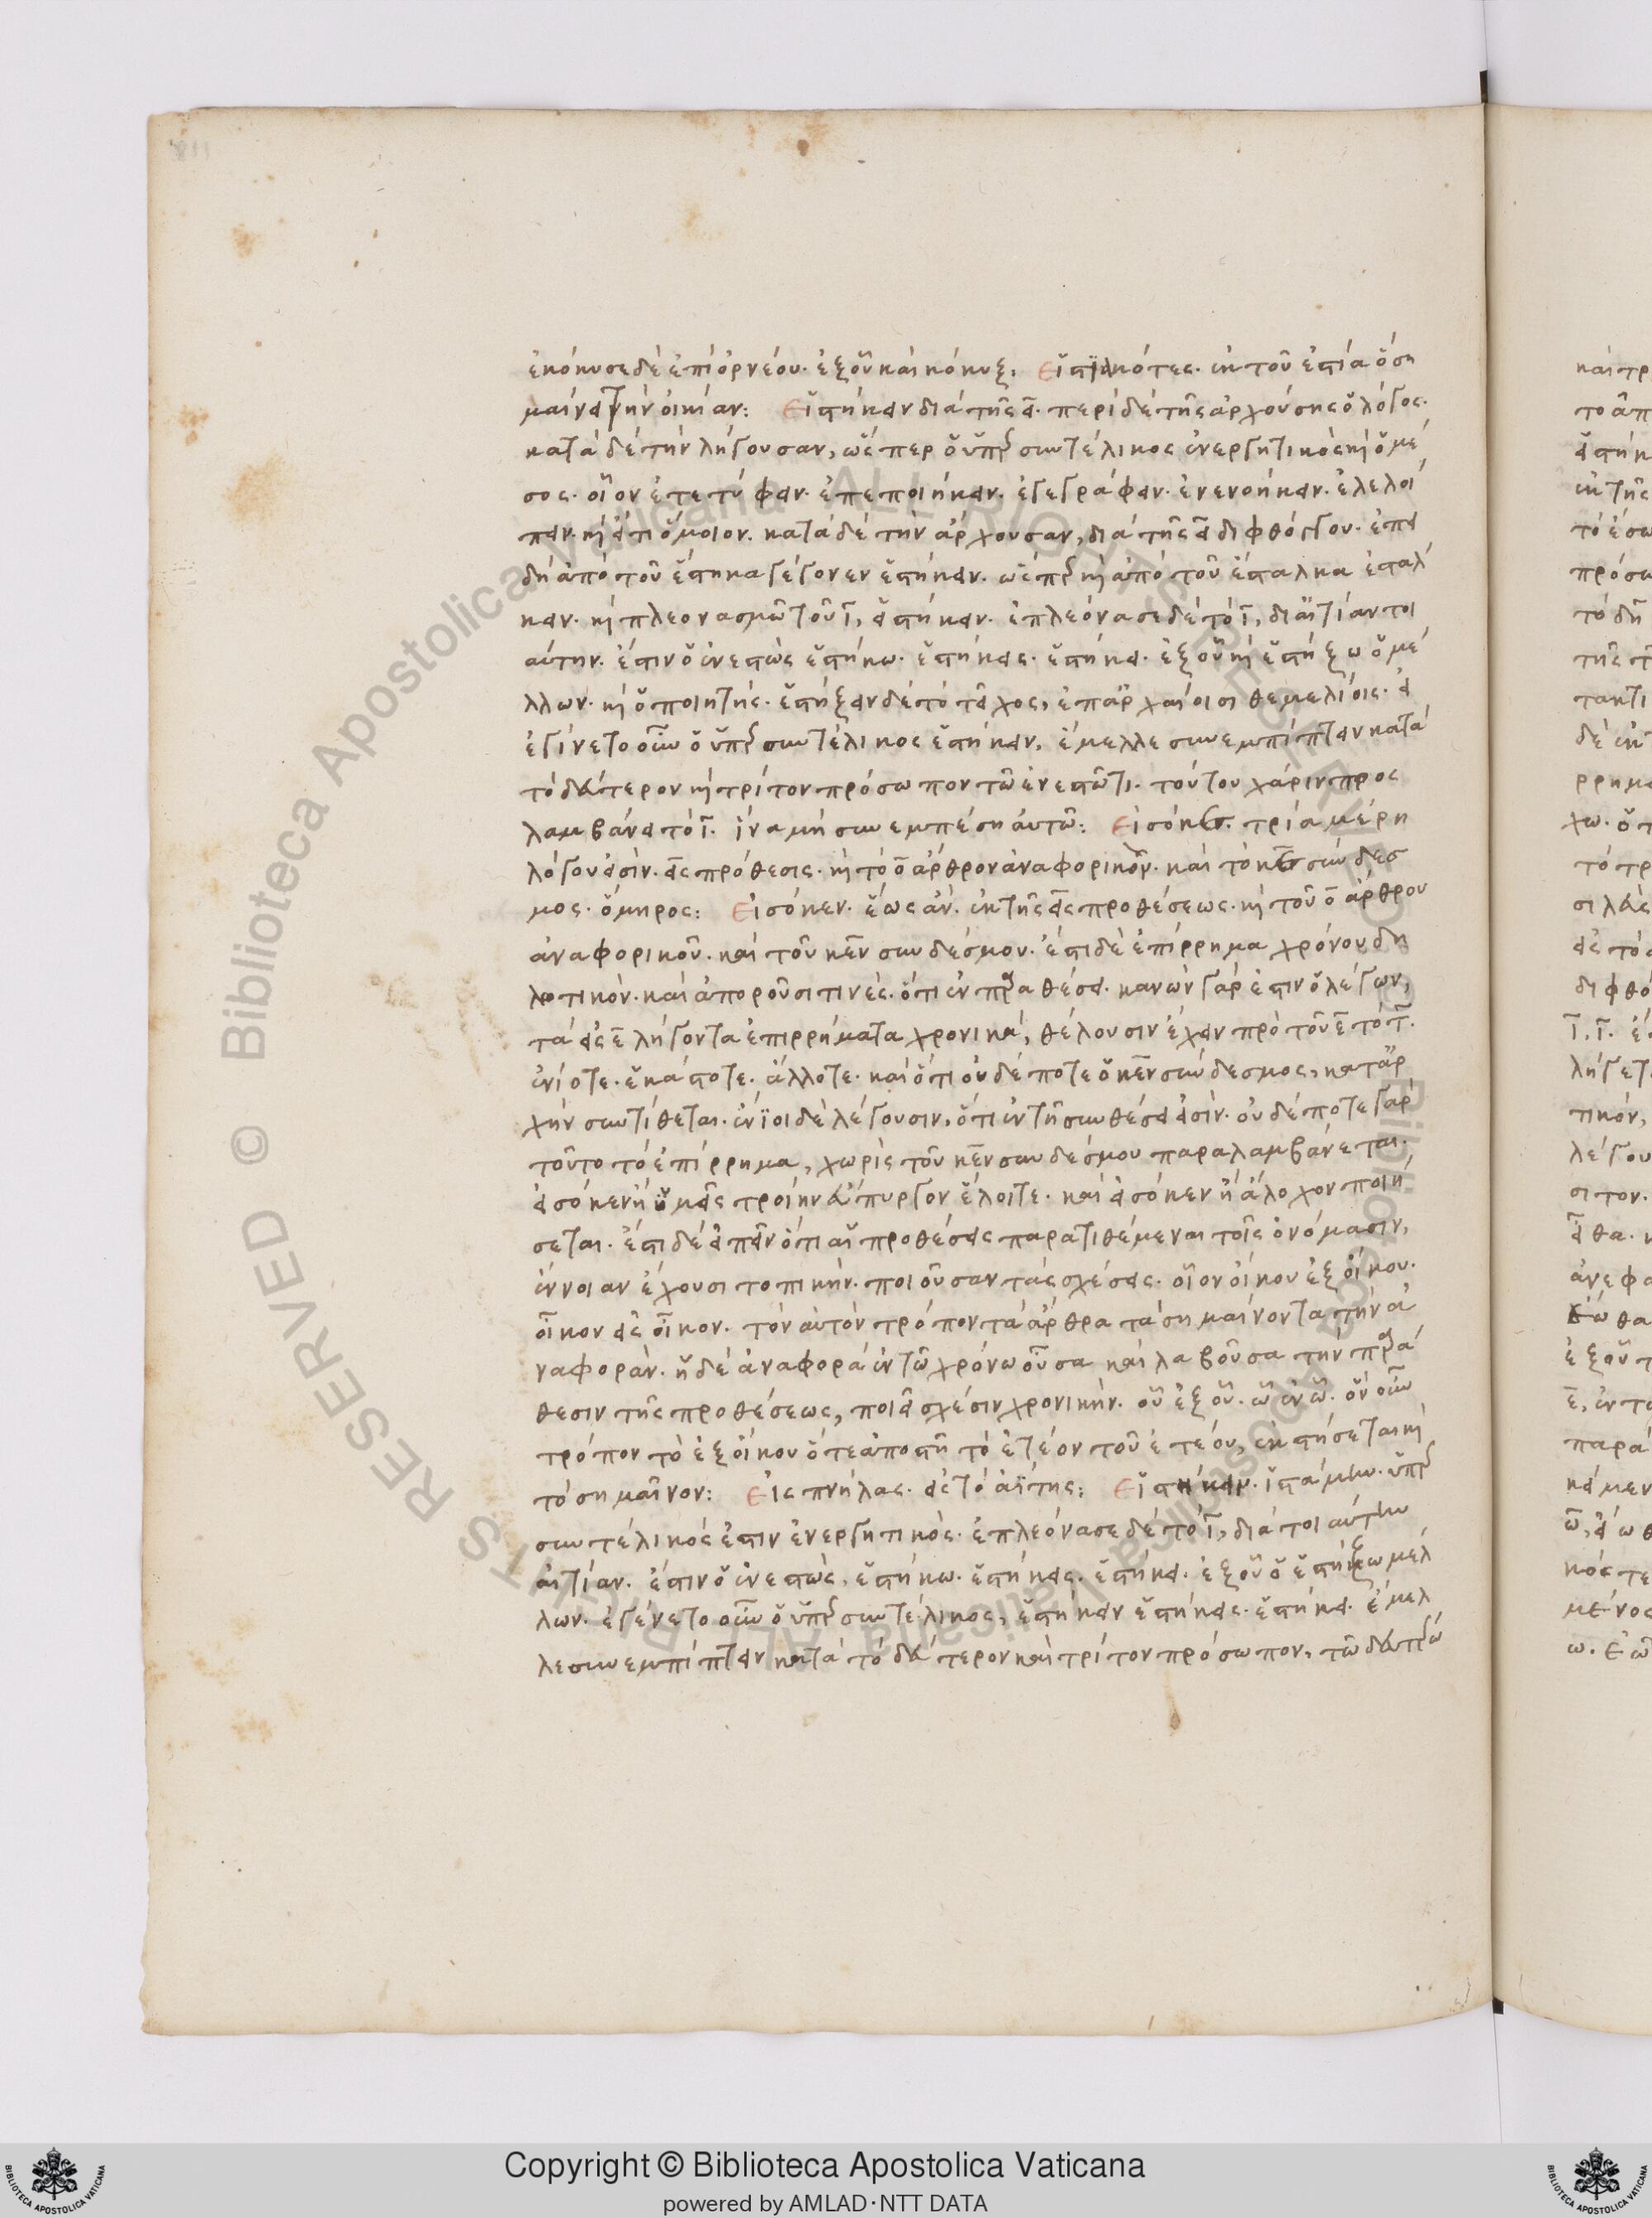 ἐκόκυσε δὲ ἐπὶ ὀρνέου. ἐξ οὗ καὶ κόκυξ. Εἱστικότες. ἐκ τοῦ ἑστία ὃ ση
μαίνει τὴν οἰκίαν: Εἱστήκειν διὰ τῆς ει. περὶ δὲ τῆς ἀρχούσης ὁ λόγος.
κατὰ δὲ τὴν λήγουσαν, ὥσπερ ὁ ὑπερσυντέλικος ἐνεργητικὸς καὶ ὁ μέ
σος. οἷον ἐτετύφειν. ἐπεποιήκειν. ἐγεγράφειν. ἐνενοήκειν. ἐλελοί
πειν. καὶ εἴ τι ὅμοιον. κατὰ δὲ τὴν ἄρχουσαν, διὰ τῆς ει διφθόγγου. ἐπει
δὴ ἀπὸ τοῦ ἕστηκα γέγονεν ἑστήκειν. ὥσπερ καὶ ἀπὸ τοῦ ἔσταλκα ἐστάλ
κειν. καὶ πλεονασμῶ τοῦ ι, εἱστήκειν. ἐπλεόνασε δὲ τὸ ι, δι αἰτίαν τοι
αύτην. ἔστιν ὁ ἐνεστὼς ἑστήκω. ἑστήκεις. ἑστήκει. ἐξ οὗ καὶ ἑστήξω ὁ μέ
λλων. καὶ ὁ ποιητής. ἑστήξειν δὲ τὸ τεῖχος, ἐπ' ἀρχαίοισι θεμελίοις. εἰ
ἐγίνετο οὖν ὁ ὑπερσυντέλικος ἑστήκειν, ἔμελλε συνεμπίπτειν κατὰ
τὸ δεύτερον καὶ τρίτον πρόσωπον τῶ ἐνεστῶτι. τούτου χάριν προς
λαμβάνει τὸ ι. ἵνα μὴ συνεμπέση αὐτῶ: Εἰσόκεν. τρία μέρη
λόγου εἰσίν. εἰς πρόθεσις. καὶ τὸ ὃ ἄρθρον ἀναφορικόν. καὶ τὸ κεν σύνδεσ
μος. ὅμηρος: Εἰσόκεν. ἕως ἄν. ἐκ τῆς εἰς προθέσεως. καὶ τοῦ ὃ ἄρθρου
ἀναφορικοῦ. καὶ τοῦ κεν συνδέσμου. ἔστι δὲ ἐπίρρημα χρόνου δη
λωτικόν. καὶ ἀποροῦσι τινές. ὅτι ἐν παραθέσει. κανὼν γάρ ἐστιν ὁ λέγων,
τὰ εἰς ε λήγοντα ἐπιρρήματα χρονικὰ, θέλουσιν ἔχειν πρὸ τοῦ ε τὸ τ.
ἐνίοτε. ἑκάστοτε. ἄλλοτε. καὶ ὅτι οὐδέποτε ὁ κεν σύνδεσμος, κατ' ἀρ
χὴν συντίθεται. ἔνϊοι δὲ λέγουσιν, ὅτι ἐν τῆ συνθέσει εἰσίν. οὐδέποτε γὰρ
τοῦτο τὸ ἐπίρρημα, χωρὶς τοῦ κεν συνδέσμου παραλαμβάνεται.
εἰσόκεν ἢ ὑμεῖς τροίην εὔπυργον ἕλοιτε. καὶ εἰσόκεν ἢ ἄλοχον ποιή
σεται. ἔστι δὲ εἰπεῖν ὅτι αἱ προθέσεις παρατιθέμεναι τοῖς ὀνόμασιν,
ἔννοιαν ἔχουσι τοπικήν. ποιοῦσαν τὰς σχέσεις. οἷον οἴκου ἐξ οἴκου.
οἶκον εἰς οἶκον. τὸν αὐτὸν τρόπον τὰ ἄρθρα τὰ σημαίνοντα τὴν ἀ
ναφοράν. ἡ δὲ ἀναφορὰ ἐν τῶ χρόνω οὖσα καὶ λαβοῦσα τὴν παρά
θεσιν τῆς προθέσεως, ποιεῖ σχέσιν χρονικήν. οὗ ἐξ οὗ. ὧ ἐν ὧ. ὃν οὖν
τρόπον τὸ ἐξ οἴκου ὅτε ἀποστῆ τὸ ἐτέον τοῦ ἐτέου, ἐκστήσεται καὶ
τὸ σημαῖνον: Εἰσπνήλας. εἰς τὸ ἀΐτης: Εἱστήκειν. ἱστάμην. ὑπερ
συντέλικός ἐστιν ἐνεργητικός. ἐπλεόνασε δὲ τὸ ι, διὰ τοιαύτην
αἰτίαν. ἔστιν ὁ ἐνεστὼς, ἑστήκω. ἑστήκεις. ἑστήκει. ἐξ οὗ ὁ ἑστήξω μέλ
λων. ἐγένετο οὖν ὁ ὑπερσυντέλικος, ἑστήκειν ἑστήκεις. ἑστήκει. ἔμελ
λε συνεμπίπτειν κατὰ τὸ δεύτερον καὶ τρίτον πρόσωπον, τῶ δευτέρω
Copyright © Biblioteca Apostolica Vaticana
powered by AMLAD·NTT DATA